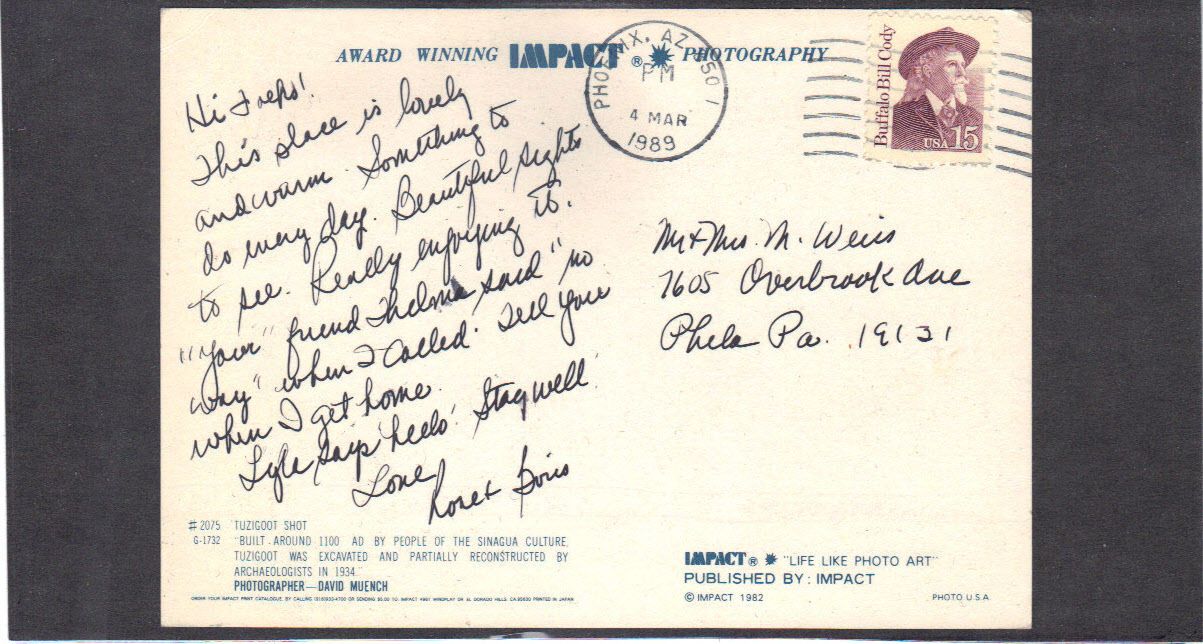 AWARD WINNING IMPACT® PHOTOGRAPHY
PHOENIX, AZ 850 1
PM
4 MAR
1989
Buffalo Bill Cody
USA 15
Hi Folks!
This place is lovely
and warm. Something to
do every day. Beautiful sights
to see. Really enjoying it.
"Your" friend Thelma said "no
way" when I called. Tell you
when I get home.
Lyle says hello! Stay well.
Love
Boris
Mr & Mrs. M. Weiss
7605 Overbrook Ave
Phila Pa. 19131
#2075 TUZIGOOT SHOT
G-1732 "BUILT AROUND 1100 AD BY PEOPLE OF THE SINAGUA CULTURE,
TUZIGOOT WAS EXCAVATED AND PARTIALLY RECONSTRUCTED BY
ARCHAEOLOGISTS IN 1934."
PHOTOGRAPHER—DAVID MUENCH
ORDER YOUR IMPACT PRINT CATALOGUE, BY CALLING (916)933-4700 OR SENDING $5.00 TO: IMPACT 4961 WINDPLAY DR EL DORADO HILLS, CA 95630 PRINTED IN JAPAN
IMPACT® "LIFE LIKE PHOTO ART"
PUBLISHED BY: IMPACT
© IMPACT 1982
PHOTO U.S.A.